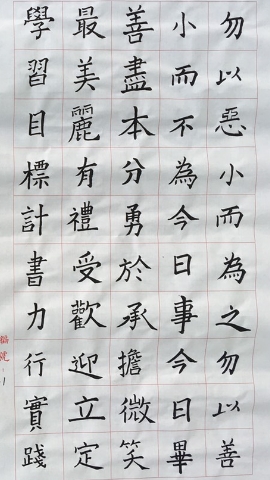 勿以惡小而為之勿以善
小而不為今日事今日畢
善盡本分勇於承擔微笑
最美麗有禮受歡迎立定
學習目標計書力行實踐